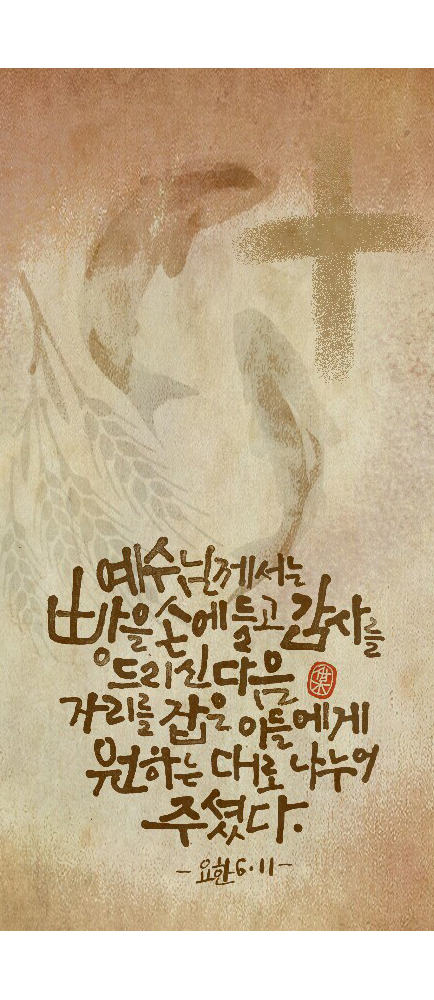 예수님께서는
빵을 손에 들고 감사를
드리신 다음
자리를 잡은 이들에게
원하는 대로 나누어
주셨다.
- 요한 6·11 -